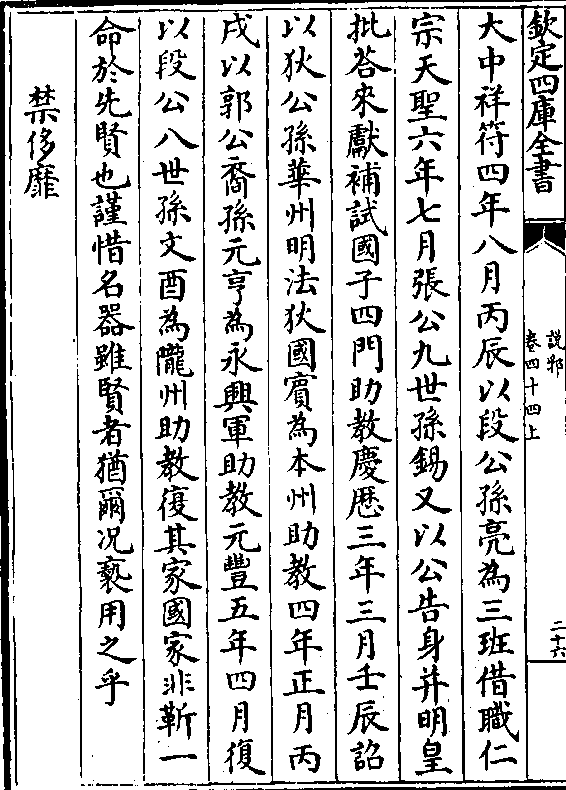 欽定四庫全書
說郛
卷四十四上
二十六
大中祥符四年八月丙辰以段公孫亮為三班借職仁
宗天聖六年七月張公九世孫錫又以公告身并明皇
批荅來獻補試國子四門助教慶厯三年三月壬辰詔
以狄公孫華州明法狄國賓為本州助教四年正月丙
戌以郭公裔孫元亨為永興軍助教元豐五年四月復
以段公八世孫文酉為隴州助教復其家國家非靳一
命於先賢也謹惜名器雖賢者猶爾况䙝用之乎
禁侈靡